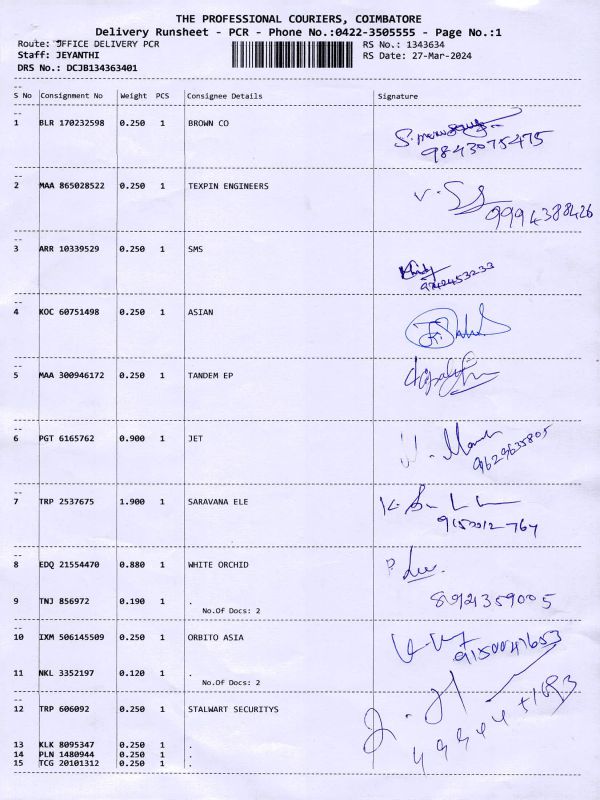 THE PROFESSIONAL COURIERS, COIMBATORE
Delivery Runsheet - PCR - Phone No.:0422-3505555 - Page No.:1
Route: OFFICE DELIVERY PCR RS No.: 1343634
Staff: JEYANTHI RS Date: 27-Mar-2024
DRS No.: DCJB134363401
S No Consignment No Weight PCS Consignee Details Signature
1 BLR 170232598 0.250 1 BROWN CO
9843075475
2 MAA 865028522 0.250 1 TEXPIN ENGINEERS
9994388426
3 ARR 10339529 0.250 1 SMS
4 KOC 60751498 0.250 1 ASIAN
5 MAA 300946172 0.250 1 TANDEM EP
6 PGT 6165762 0.900 1 JET
9629635805
7 TRP 2537675 1.900 1 SARAVANA ELE
8 EDQ 21554470 0.880 1 WHITE ORCHID
9 TNJ 856972 0.190 1 .
No.Of Docs: 2
10 IXM 506145509 0.250 1 ORBITO ASIA
11 NKL 3352197 0.120 1 .
No.Of Docs: 2
12 TRP 606092 0.250 1 STALWART SECURITYS
13 KLK 8095347 0.250 1 .
14 PLN 1480944 0.250 1 .
15 TCG 20101312 0.250 1 .